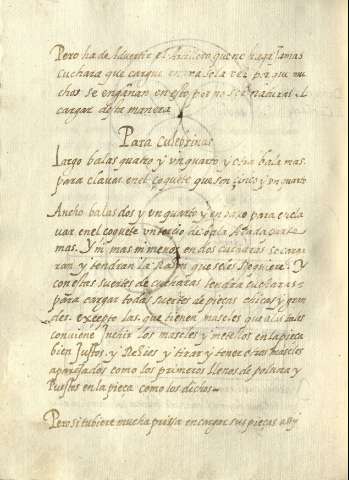 Pero ha de Advertir el Artillero que no haga Jamas
cuchara que cargue en una sola vez porque mu
chos se engañan en esto por no ser natural el
cargar desta manera
Para Culebrinas
Largo balas quatro y un quarto, y otra bala mas
para clavar en el coquete que son çinco y un quarto
Ancho balas dos y un quarto y en baxo para encla
var en el coquete un tercio de
mas. Y ni mas ni menos en dos cucharas se carga
ran y tendran la Razon que se les Requiere. Y
con estas suertes de cucharas tendra cucharas
para cargar todas suertes de pieças chicas y gran
des. excepto las que tienen mascles que a las tales
conviene henchir los mascles y metellos en la pieça
bien Justos. y Reçios y tirar y tener otros mascles
aparejados como los primeros llenos de polvora y
Puestos en la pieça como los dichos
Pero si tubiere mucha prissa en cargar sus pieças assy